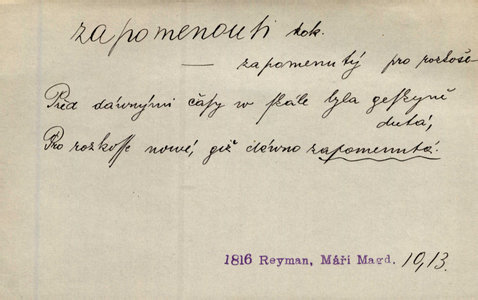 zapomenouti dok.
— zapomenutý pro rozkoše
Před dáwnými čásy w skále byla geskyně
dutá,
Pro rozkosse nowé, giž dáwno zapomenutá.
1816 Reyman, Máří Magd. 10,13.